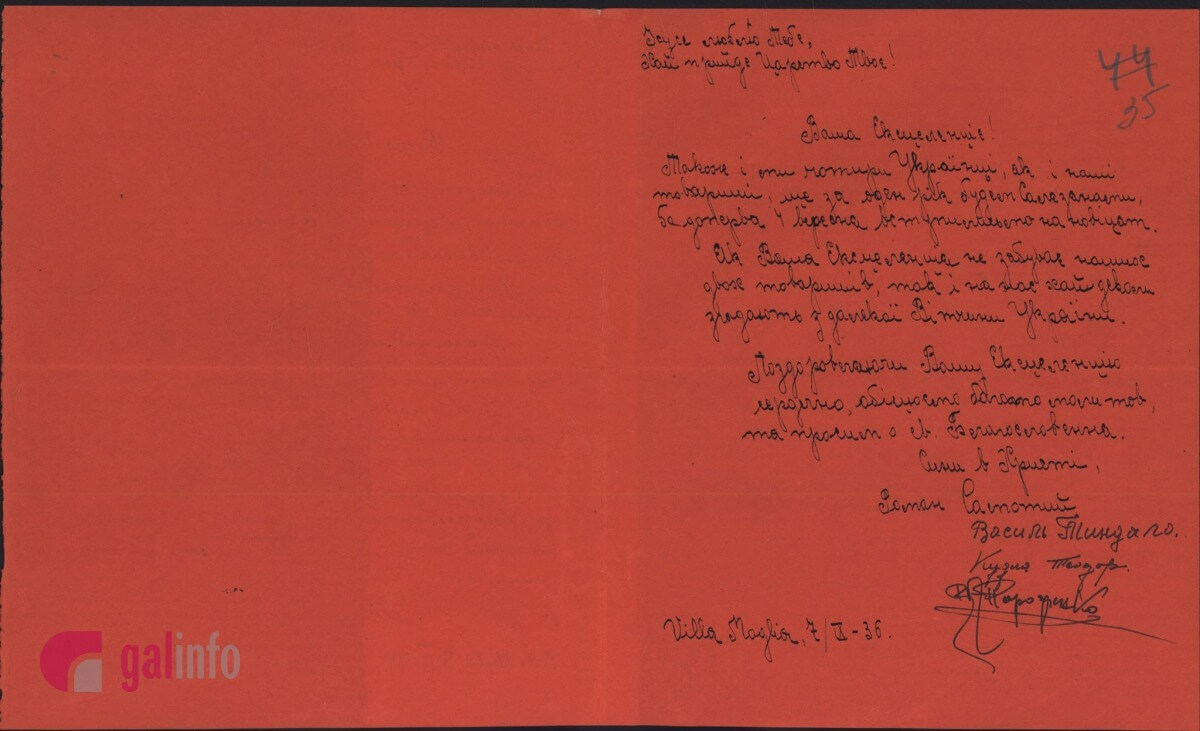 Ісусе люблю Тебе,
Най прийде Царство Твоє!
44
35
Ваша Ексцеленціє!
Також і ми чотири Українці, як і наші
товариші, ще за один рік будем Салезіянами,
бо доперва 4 вересня вступилисьмо на новіцят.
Як Ваша Ексцеленція не забуває наших
двох товаришів, так і на нас хай деколи
згадають з далекої Вітчини України.
Поздоровляючи Вашу Ексцеленцію
сердечно, обіцюємо багато молитов,
та просим о св. Благословення.
Сини в Христі,
Роман
Василь Тиндало.
Теодор.
Villa Moglia, 7/IX-36.
galinfo